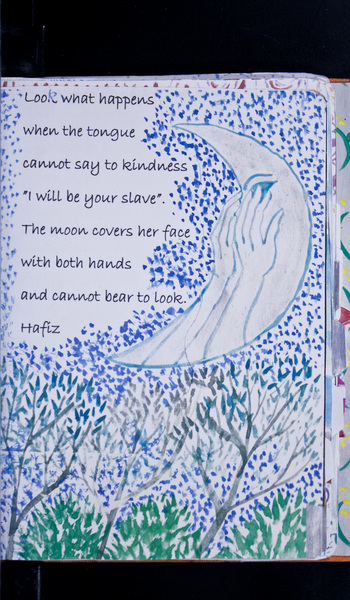 Look what happens
when the tongue
cannot say to kindness
"I will be your slave".
The moon covers her face
with both hands
and cannot bear to look.
Hafiz